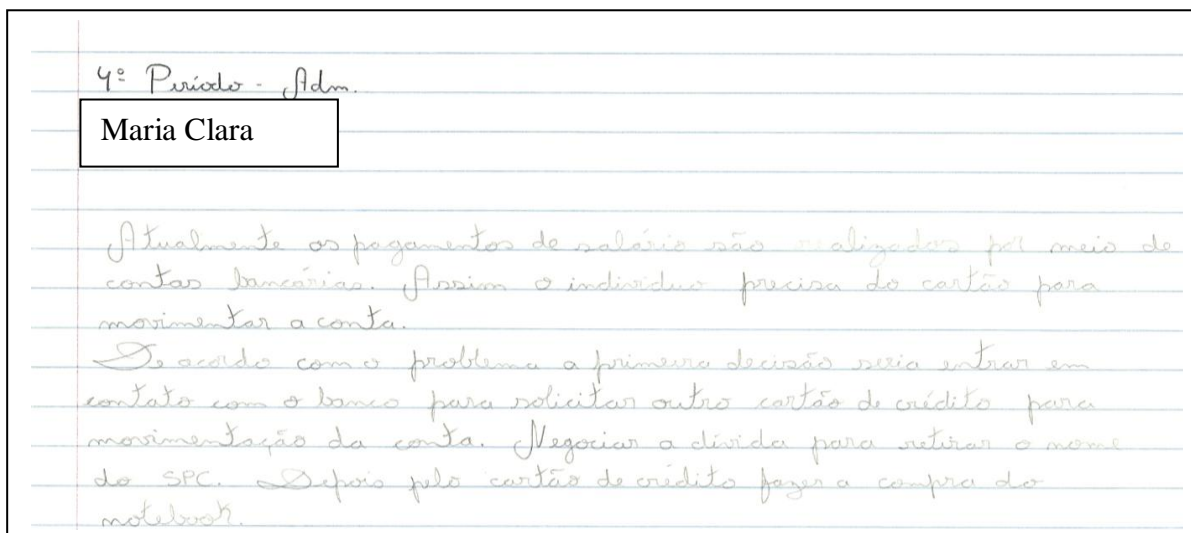 4º Período - Adm.
Maria Clara
Atualmente os pagamentos de salário são realizados por meio de
contas bancárias. Assim o individuo precisa do cartão para
movimentar a conta.
De acordo com o problema a primeira decisão seria entrar em
contato com o banco para solicitar outro cartão de crédito para
movimentação da conta. Negociar a dívida para retirar o nome
do SPC. Depois pelo cartão de crédito fazer a compra do
notebook.